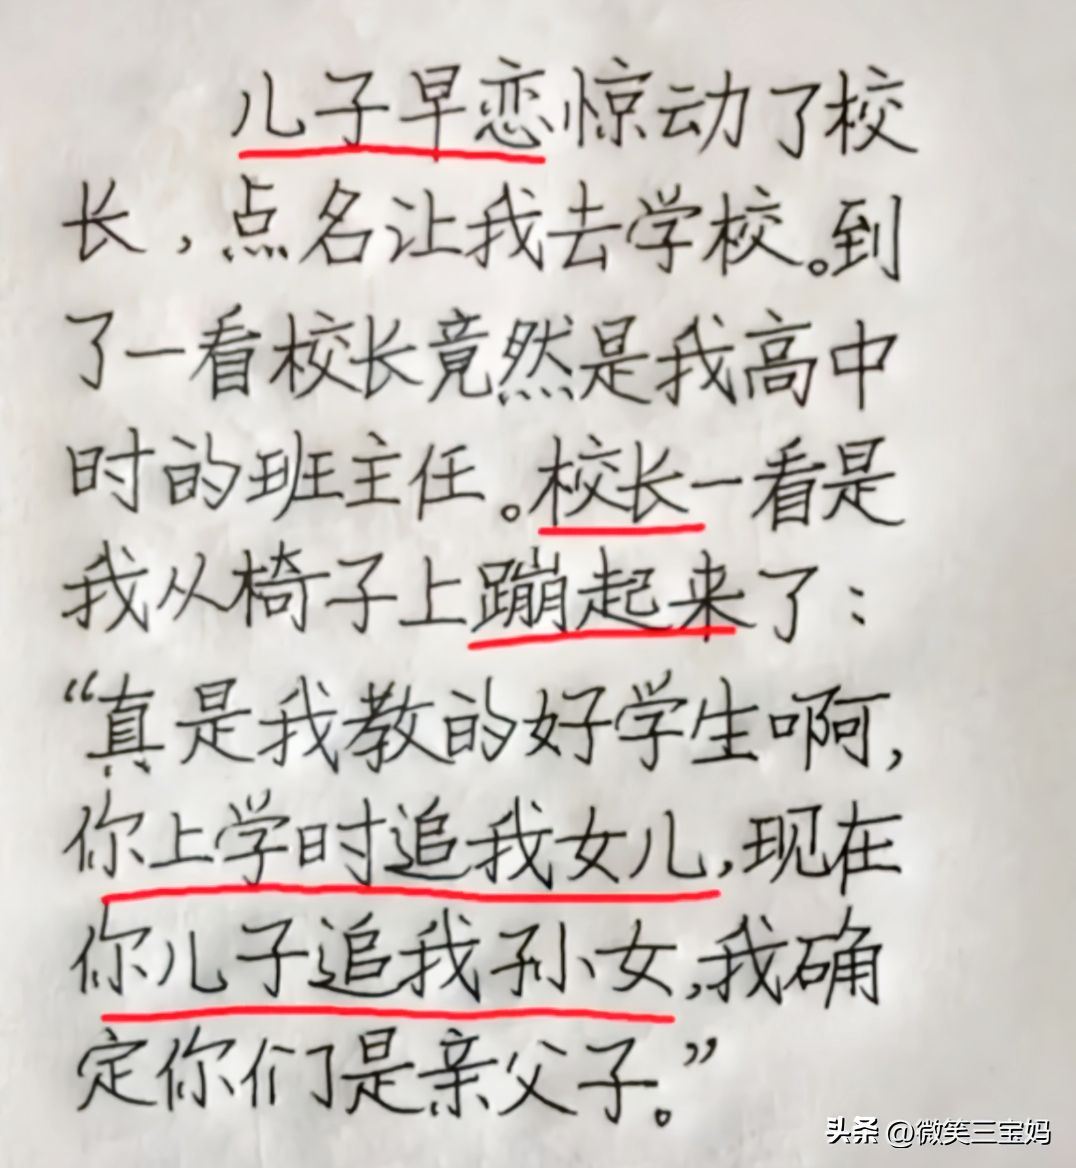 儿子早恋惊动了校
长,点名让我去学校。到
了一看校长竟然是我高中
时的班主任。校长一看是
我从椅子上蹦起来了:
“真是我教的好学生啊,
你上学时追我女儿,现在
你儿子追我孙女,我确
定你们是亲父子。”
头条 @微笑三宝妈